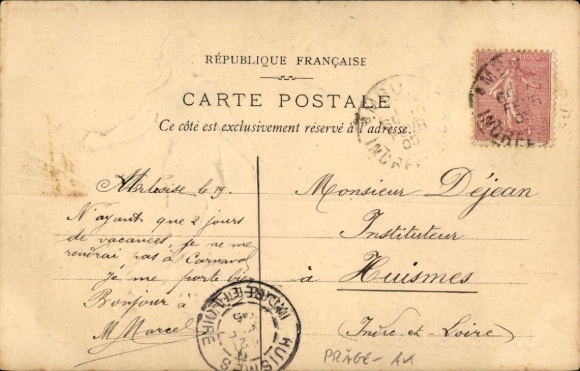 RÉPUBLIQUE FRANÇAISE
CARTE POSTALE
Ce côté est exclusivement réservé à l'adresse.
le 19
N'ayant que 2 jours
de vacances, je ne me
rendrai pas à Carnaval
Je me porte bien
Bonjour à
M Marcel
Monsieur Déjean
Instituteur
à Huismes
Indre et Loire
INDRE
INDRE
HUISMES
INDRE-ET-LOIRE
PRÄGE-AK